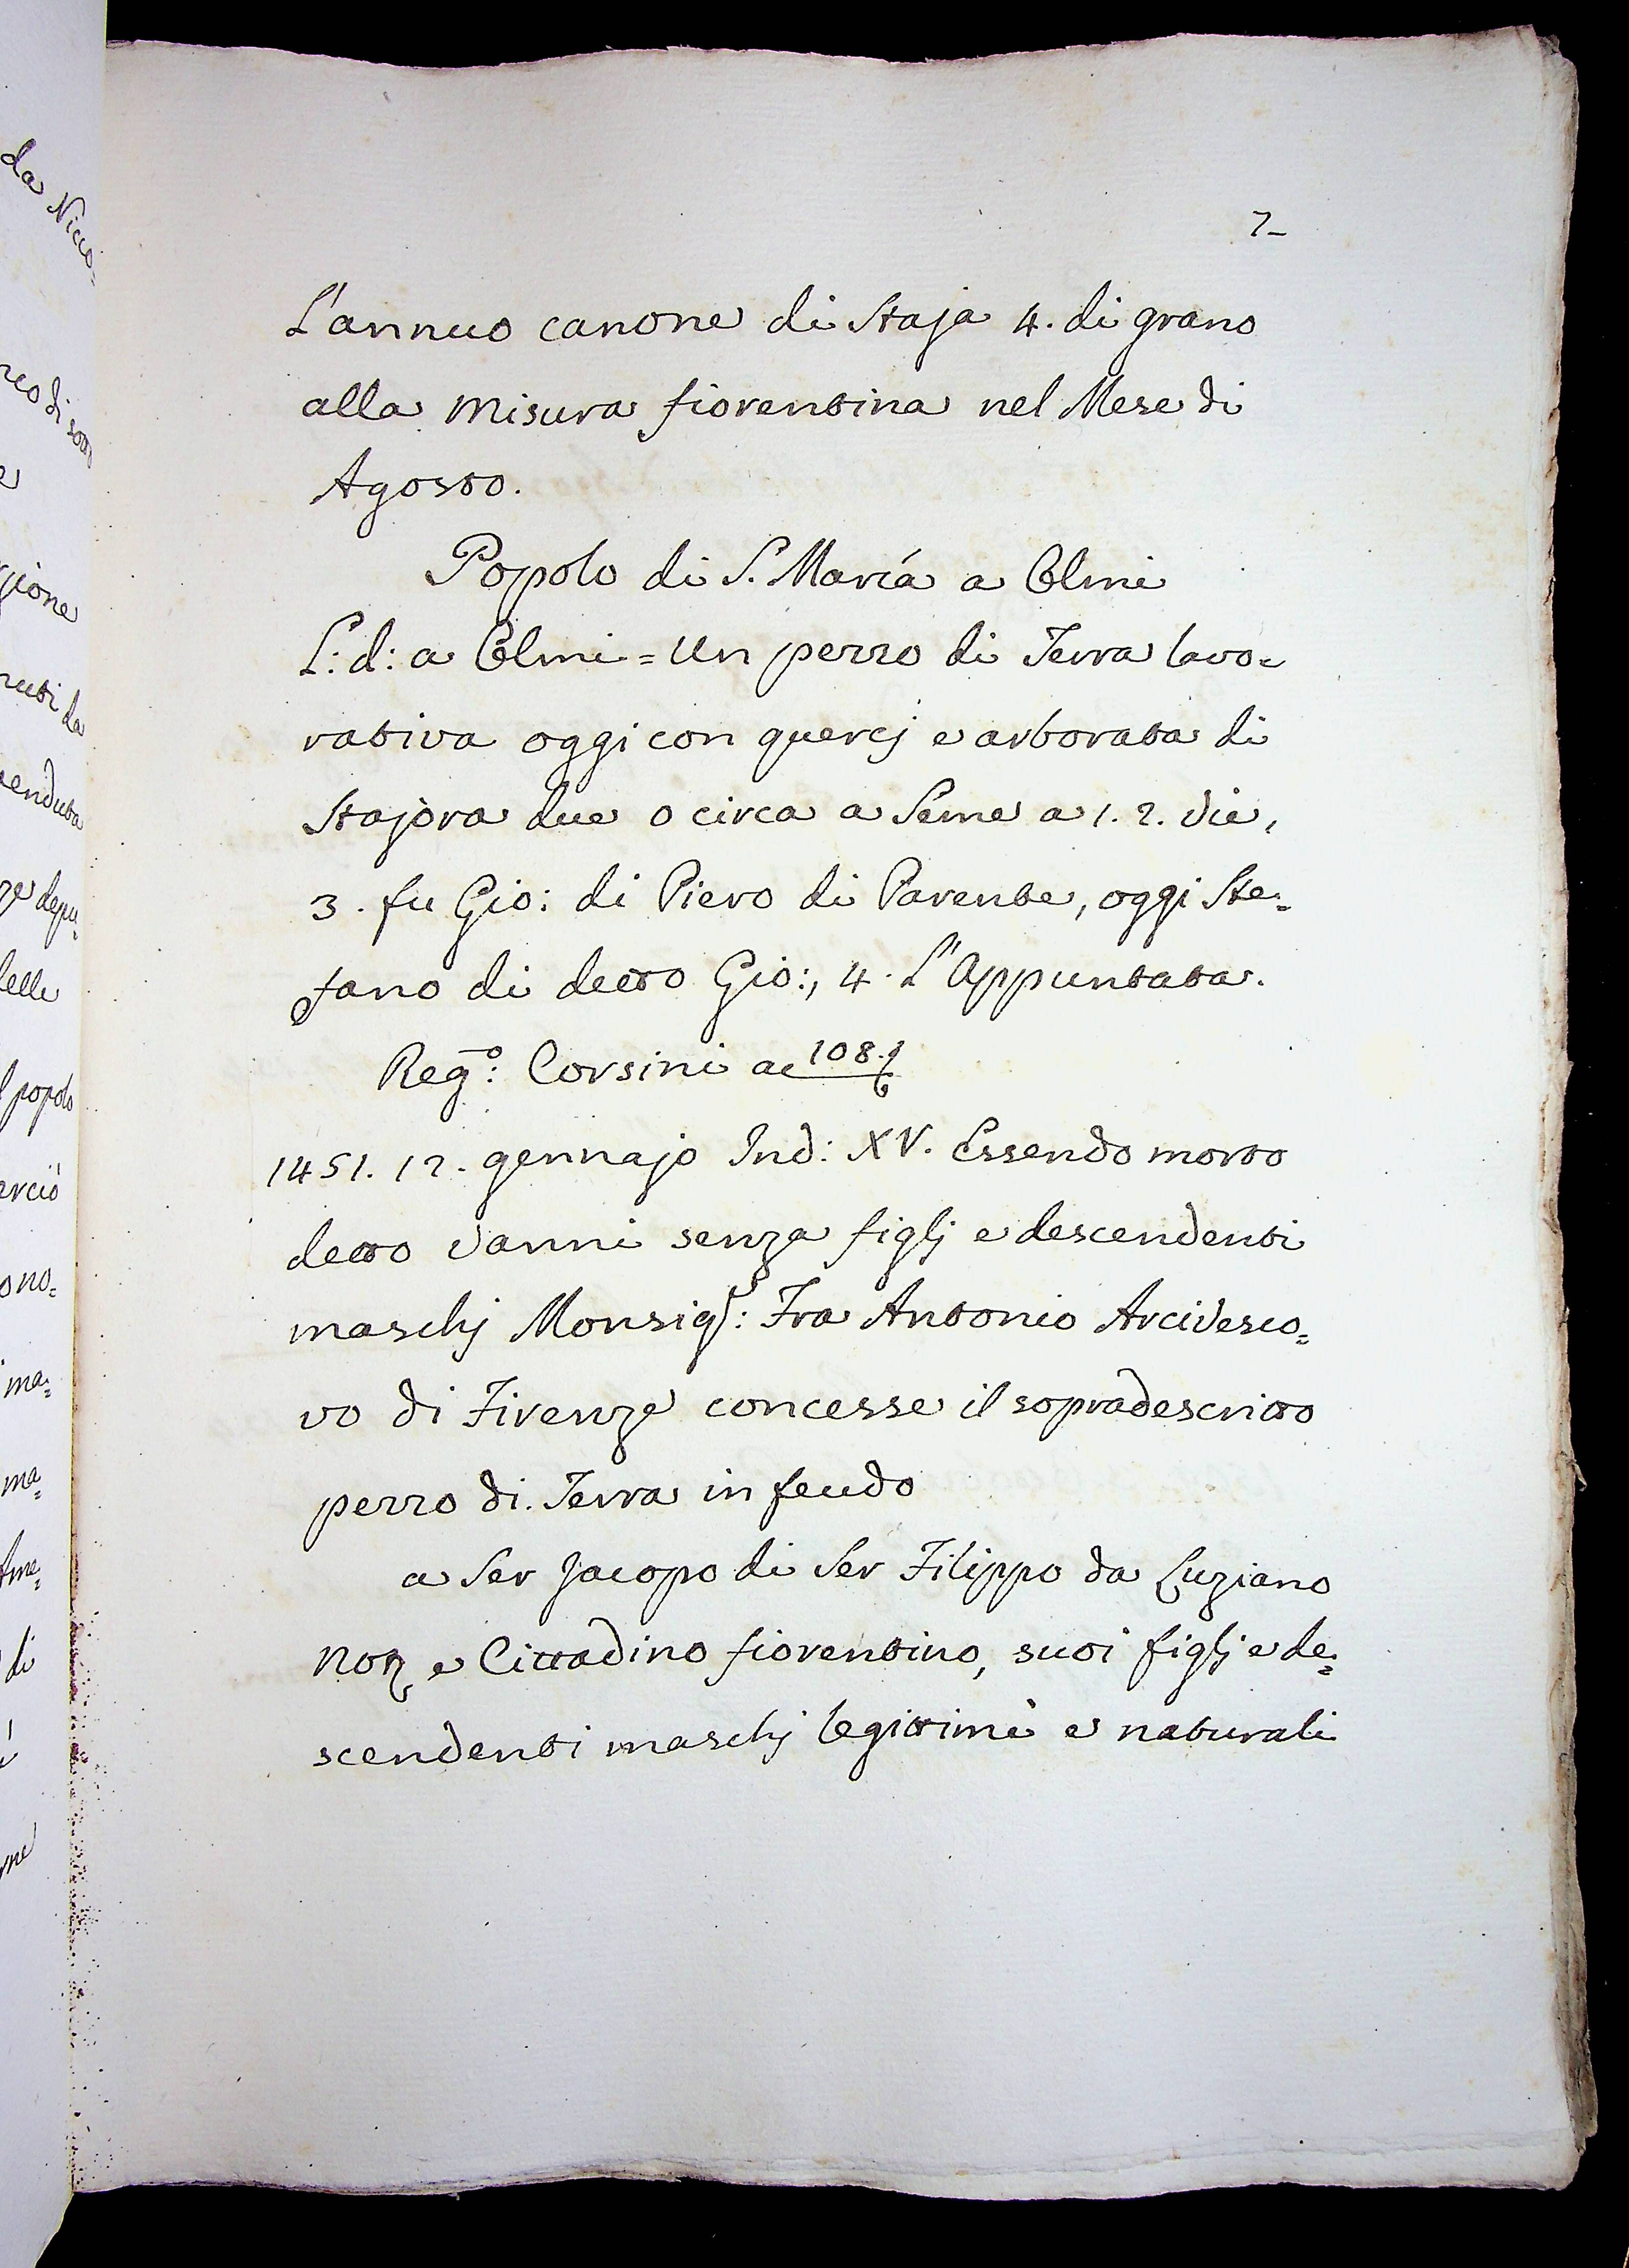 da Nicco=
7-
L'annuo canone di Staja 4. di grano
alla misura fiorentina nel Mese di
Agosto.
Popolo di S. Maria a Olmi
L: d: a Olmi = Un pezzo di Terra lavo=
rativa oggi con quercj e arborata di
Stajora due o circa a Seme a 1. 2. via,
3. fu Gio: di Piero di Parente, oggi Ste=
fano di detto Gio:, 4. L'Appuntata.
Reg.o: Corsini a 108.
1451. 12. gennajo Ind: XV. Essendo morto
detto Vanni senza figlj e descendenti
maschj Monsig.r: Fra Antonio Arcivesco=
vo di Firenze concesse il sopradescritto
pezzo di Terra in feudo
a Ser Jacopo di Ser Filippo da Luziano
Not e Cittadino fiorentino, suoi figlj e de=
scendenti maschj legittimi e naturali